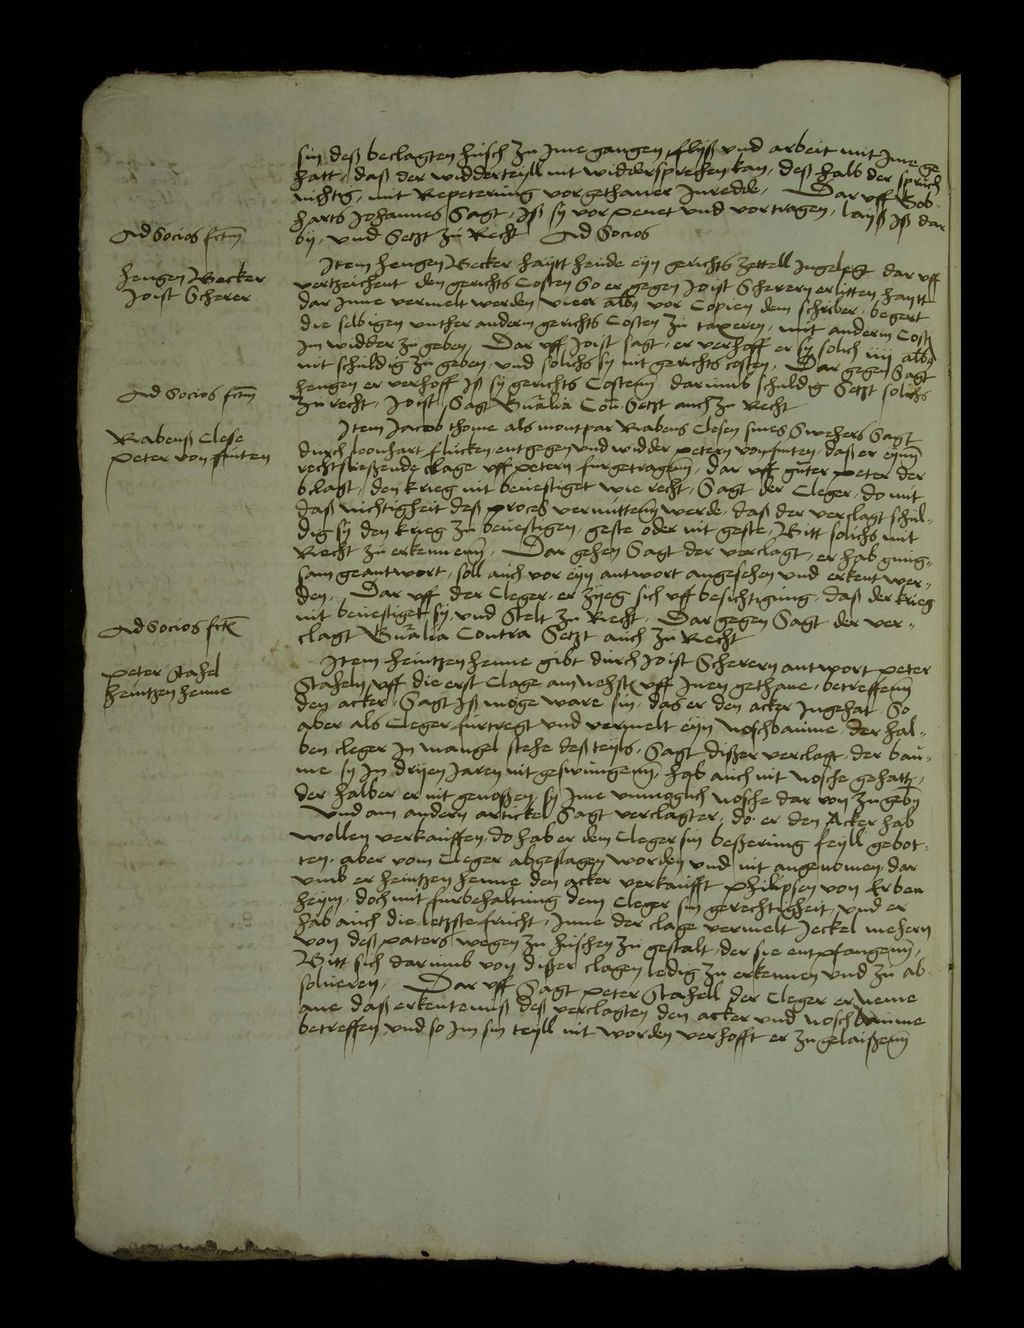 sin deß beclagten husch zu ime gangen, flyß und arbeit mit ime ge
hatt, daß der widderteyll nit widdersprechen kan, deß halb der spruch
nichtig, mit Repetering vorgethaner Inredde, Dar uff Geb-
harts Johannes Sagt, Iß sy vor penet und vortragen, layß iß dar
Ad socios fctm
by, und Setzt zu Recht Ad Socios
Hengen Becker
Joist Scherer
Item Hengen Becker haytt heude eyn gerichts zettell Ingelegt dar uff
vertzeichent den gerichts Costen So er gegen Joist Scherern erlitten haytt
dar Inne vermelt werden vier albus vor Copien dem schriber, begert
die selbigen unther andern gerichts Costen zu taxeren, mit andern Costen
Im widder zu geben, Dar uff Joist sagt, er verhoff er sy solich iiii albus
nit schuldig zu geben, und solichs sy nit gerichts costen, Dar gegen Sagt
Hengen er verhoff Iß sy gerichts Costenn, darumb schuldig Setzt solichs
Ad socios fctm
zu recht, Joist Sagt Gnalia Con Setzt auch zu Recht
Rabenß Clese
Peter von finten
Item Jacob thome als montpar Rabens Clesen sines Swehers Sagt
durch leonhart flucken, entgegen und widder petern von finten, daß er eynn
rechtfließende clage uff petern furgetragenn, dar uff guter peter der
bclagt, den krieg nit bevestiget wie recht, Sagt der Cleger, do mit
daß nichtigheit deß proceß vermittenn werde, daß der verclagt schul-
dig sy den krieg zu bevestigen, geste oder nit geste, Bitt solichs mit
Recht zu erkennenn, Dar gehen Sagt der verclagt, er hab gnug-
sam geantwort, soll auch vor eyn antwort angesehen und erkent wer-
den, Dar uff der Cleger, er zyeg sich uff besichtigung, daß der krieg
nit bevestiget sy, und Stelt zu Recht, Dar gegen Sagt der ver-
Ad socios fct
clagt Gnalia Contra Setzt auch zu Recht
Peter Stahel
Heintzen Henne
Item Heintzen Henne gibt durch Joist Scherern antwort peter
Staheln uff die erst Clage am nehst uff Inen gethane, betreffenn
den acker, Sagt Iß moge ware sin, das er den acker Ingehat So
aber als Cleger furtregt und vermelt eyn noschbaume, der hal-
ben cleger In mangel stehe deß teyls, Sagt dißer verclagt, der bau-
me sy In dryen Jaren nit geswungenn, hab auch nit nosche gehatt,
der halber er nit genoßen, sy Ime unmoglich nosche dar von zu gebn
Und am andern artickel Sagt verclagter, do er den Acker hab
wollen verkauffen, do hab er dem Cleger sin beßerung feyll gebot-
ten, aber vom Cleger abgeslagen worden und nit angenomen, dar
umb er Heintzen Henne den acker verkaufft philipsen von Erben
heym, doch mit furbehaltung dem Cleger sin gerechtigheit, und er
hab auch die letzste frucht, Inne der clage vermelt Jeckel
von deß paters wegen zu huschen zu gestalt, der sie entpfangenn,
Bitt sich darumb von dißer clagen ledig zu erkennen und zu ab-
solueren, Dar uff Sagt peter Stahell der Cleger er neme
ane daß erkentenuß deß verclagten den acker und noschbaume
betreffen und so Im sin teyll nit worden verhofft er zu gelaißenn